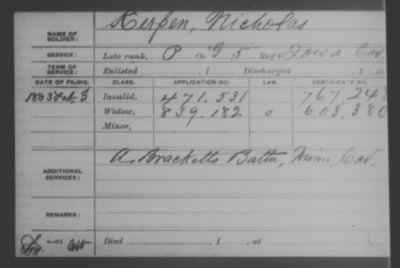 NAME OF SOLDIER: Kerpen, Nicholas
SERVICE: Late rank, P Co. G, 5 Reg't Iowa Cav.
TERM OF SERVICE: Enlisted , 1 Discharged , 1
DATE OF FILING. CLASS. APPLICATION NO. LAW. CERTIFICATE NO.
Invalid, 471.531 767.248
Widow, 839.182 603.380
Minor,
ADDITIONAL SERVICES: A. Bracketts Battn, Minn. Cav.
REMARKS:
Died , 1 , at